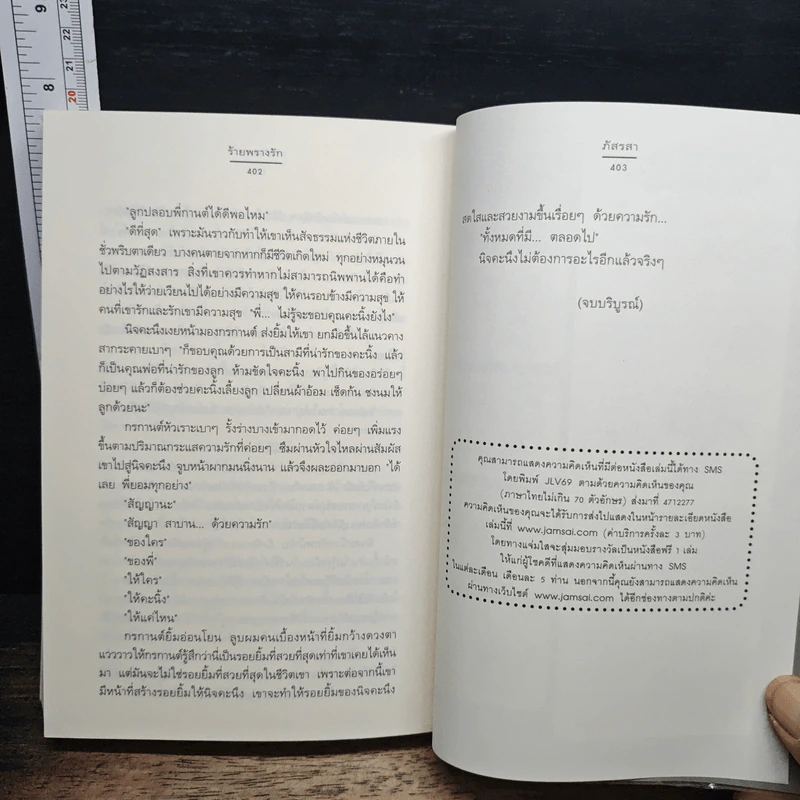 ร้ายพรางรัก
402
"ลูกปลอบพี่กานต์ได้ดีพอไหม"
"ดีที่สุด" เพราะมันราวกับทำให้เขาเห็นสัจธรรมแห่งชีวิตภายใน
ชั่วพริบตาเดียว บางคนตายจากหากก็มีชีวิตเกิดใหม่ ทุกอย่างหมุนวน
ไปตามวัฏสงสาร สิ่งที่เขาควรทำหากไม่สามารถนิพพานได้คือทำ
อย่างไรให้ว่ายเวียนไปได้อย่างมีความสุข ให้คนรอบข้างมีความสุข ให้
คนที่เขารักและรักเขามีความสุข "พี่... ไม่รู้จะขอบคุณคะนิ้งยังไง"
นิจคะนึงเงยหน้ามองกรกานต์ ส่งยิ้มให้เขา ยกมือขึ้นไล้แนวคาง
สากระคายเบาๆ "ก็ขอบคุณด้วยการเป็นสามีที่น่ารักของคะนิ้ง แล้ว
ก็เป็นคุณพ่อที่น่ารักของลูก ห้ามขัดใจคะนิ้ง พาไปกินของอร่อยๆ
บ่อยๆ แล้วก็ต้องช่วยคะนิ้งเลี้ยงลูก เปลี่ยนผ้าอ้อม เช็ดก้น ชงนมให้
ลูกด้วยนะ"
กรกานต์หัวเราะเบาๆ รั้งร่างบางเข้ามากอดไว้ ค่อยๆ เพิ่มแรง
ขึ้นตามปริมาณกระแสความรักที่ค่อยๆ ซึมผ่านหัวใจไหลผ่านสัมผัส
เขาไปสู่นิจคะนึง จูบหน้าผากมนนิ่งนาน แล้วจึงผละออกมาบอก "ได้
เลย พี่ยอมทุกอย่าง"
"สัญญานะ"
"สัญญา สาบาน... ด้วยความรัก"
"ของใคร"
"ของพี่"
"ให้ใคร"
"ให้คะนิ้ง"
"ให้แค่ไหน"
กรกานต์ยิ้มอ่อนโยน ลูบผมคนเบื้องหน้าที่ยิ้มกว้างดวงตา
แวววาวให้กรกานต์รู้สึกว่านี่เป็นรอยยิ้มที่สวยที่สุดเท่าที่เขาเคยได้เห็น
มา แต่มันจะไม่ใช่รอยยิ้มที่สวยที่สุดในชีวิตเขา เพราะต่อจากนี้เขา
มีหน้าที่สร้างรอยยิ้มให้นิจคะนึง เขาจะทำให้รอยยิ้มของนิจคะนึง
ภัสรสา
403
สดใสและสวยงามขึ้นเรื่อยๆ ด้วยความรัก...
"ทั้งหมดที่มี... ตลอดไป"
นิจคะนึงไม่ต้องการอะไรอีกแล้วจริงๆ
(จบบริบูรณ์)
คุณสามารถแสดงความคิดเห็นที่มีต่อหนังสือเล่มนี้ได้ทาง SMS
โดยพิมพ์ JLV69 ตามด้วยความคิดเห็นของคุณ
(ภาษาไทยไม่เกิน 70 ตัวอักษร) ส่งมาที่ 4712277
ความคิดเห็นของคุณจะได้รับการส่งไปแสดงในหน้ารายละเอียดหนังสือ
เล่มนี้ที่ www.jamsai.com (ค่าบริการครั้งละ 3 บาท)
โดยทางแจ่มใสจะสุ่มมอบรางวัลเป็นหนังสือฟรี 1 เล่ม
ให้แก่ผู้โชคดีที่แสดงความคิดเห็นผ่านทาง SMS
ในแต่ละเดือน เดือนละ 5 ท่าน นอกจากนี้คุณยังสามารถแสดงความคิดเห็น
ผ่านทางเว็บไซต์ www.jamsai.com ได้อีกช่องทางตามปกติค่ะ
9
8
23
22
21
20